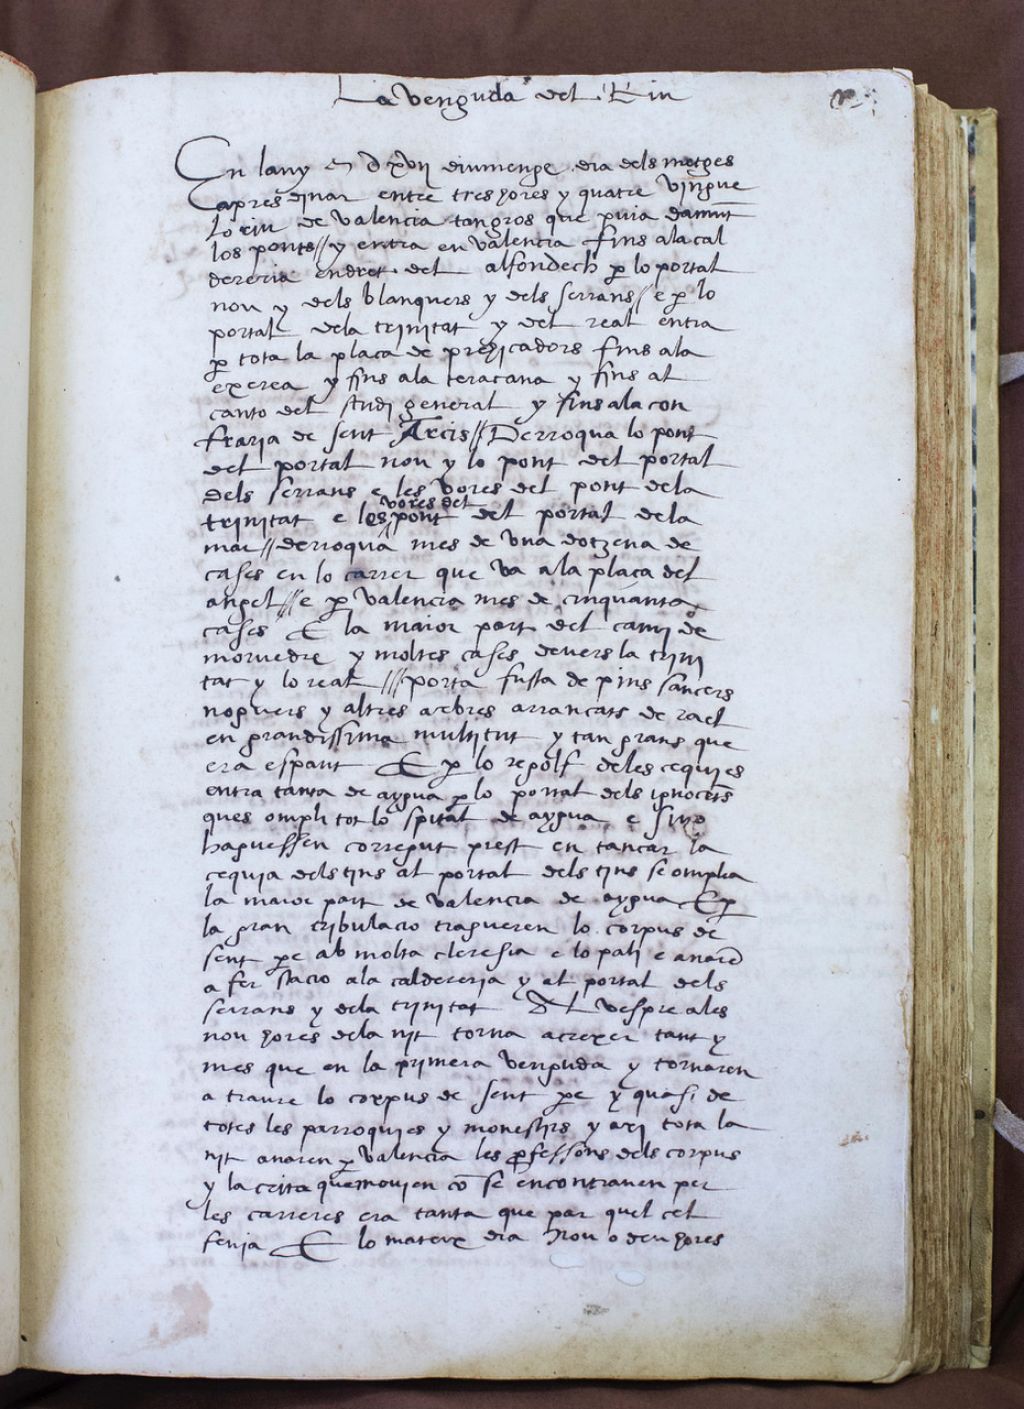 La venguda del Riu
En lany M D xvii diumenge dia dels metges
apres dinar entre tres hores y quatre vingue
lo riu de Valencia tan gros que puia damut
los ponts // y entra en Valencia fins ala cal
dereria endret del alfondech p lo portal
nou y dels blanquers y dels serrans // e p lo
portal dela trinitat y del real entra
p tota la placa de prehicadors fins ala
exerea y fins ala teracana y fins al
canto del studi general y fins ala con
fraria de sent Arcis // Derroqua lo pont
del portal nou y lo pont del portal
dels serrans e les vores del pont dela
trinitat e les vores del pont del portal dela
mar // derroqua mes de una dotzena de
cases en lo carrer que va ala placa del
angel // e p Valencia mes de cinquanta
cases E la maior part del cami de
morvedre y moltes cases devers la trini
tat y lo real /// porta fusta de pins sancers
noguers y altres arbres arrancats de rael
en grandissima multitut y tan grans que
era espant E p lo regolf deles cequies
entra tanta de aygua p lo portal dels ignocets
ques ompli tot lo spital de aygua e sino
haguessen corregut prest en tancar la
cequia dels tins al portal dels tins se omplia
la maior part de Valencia de aygua E p
la gran tribulacio tragueren lo corpus de
sent pe ab molta cleresia e lo pali e anare
a fer stacio ala caldereria y al portal dels
serrans y dela trinitat Al vespre ales
nou hores dela nit torna acrexer tant y
mes que en la primera venguda y tornaren
a traure lo corpus de sent pe y quasi de
totes les parroquies y monestirs y axi tota la
nit anaren p Valencia les pfessons dels corpus
y la crita que movien co se encontraven per
les carreres era tanta que par quel cel
fenia E lo mateix dia nou o deu hores